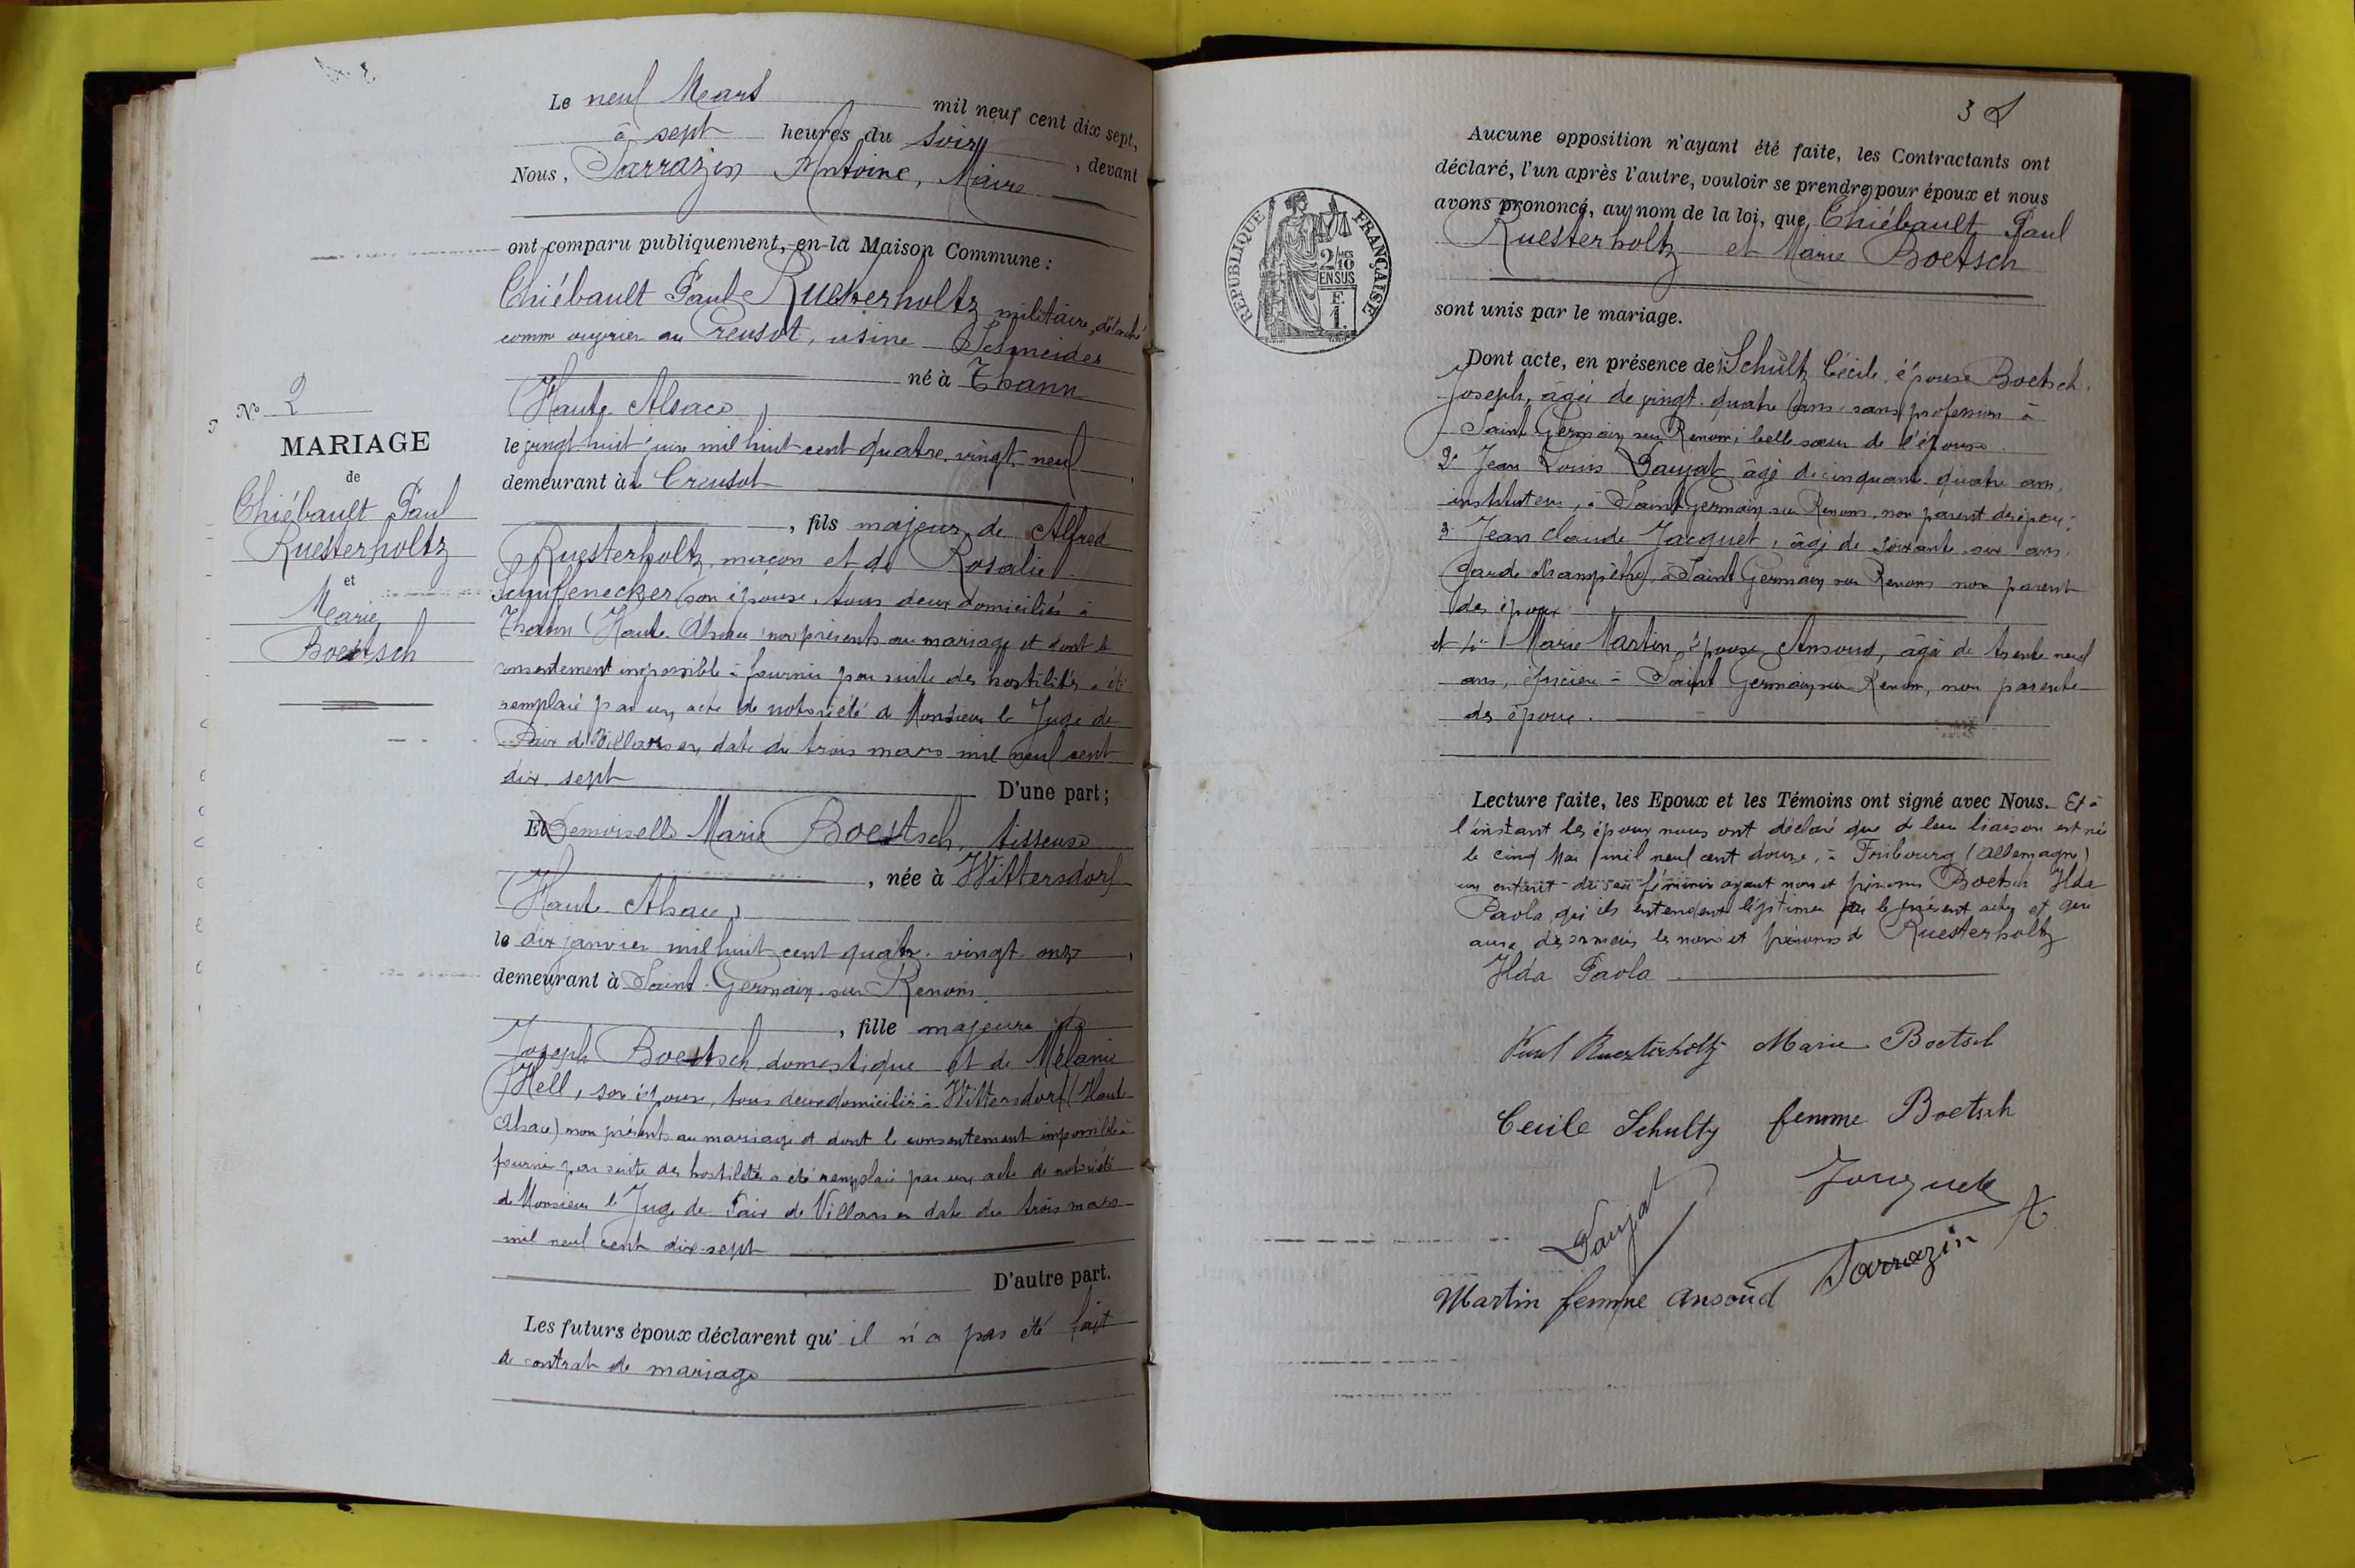 Le neuf Mars mil neuf cent dix sept,
à sept heures du soir, devant
Nous, Sarrazin Antoine, Maire
ont comparu publiquement, en la Maison Commune :
Thiébault Paul Ruesterholtz militaire, détaché
comme ouvrier au Creusot, usine Schneider
né à Thann
(Haute Alsace)
le vingt huit juin mil huit cent quatre vingt neuf,
demeurant à le Creusot
, fils majeur de Alfred
Ruesterholtz, maçon et de Rosalie
Schuffenecker son épouse, tous deux domiciliés à
Thann (Haute Alsace) non présents au mariage et dont le
consentement impossible à fournir par suite des hostilités a été
remplacé par un acte de notoriété de Monsieur le Juge de
Paix de Villars en date du trois mars mil neuf cent
dix sept
D'une part ;
Et Demoiselle Marie Boetsch, tisseuse
, née à Wittersdorf
(Haute Alsace)
le dix janvier mil huit cent quatre vingt onze,
demeurant à Saint Germain sur Renom
, fille majeure de
Joseph Boetsch domestique et de Mélanie
Hell, son épouse, tous deux domiciliés à Wittersdorf (Haute
Alsace) non présents au mariage et dont le consentement impossible à
fournir par suite des hostilités a été remplacé par un acte de notoriété
de Monsieur le Juge de Paix de Villars en date du trois mars
mil neuf cent dix-sept
D'autre part.
Les futurs époux déclarent qu'il n'a pas été fait
de contrat de mariage
N° 2
MARIAGE
de
Thiébault Paul
Ruesterholtz
et
Marie
Boetsch
3
RÉPUBLIQUE FRANÇAISE
2/10
EN SUS
F.
1.
Aucune opposition n'ayant été faite, les Contractants ont
déclaré, l'un après l'autre, vouloir se prendre pour époux et nous
avons prononcé, au nom de la loi, que Thiébault Paul
Ruesterholtz et Marie Boetsch
sont unis par le mariage.
Dont acte, en présence de Schultz Cécile, épouse Boetsch
Joseph, âgée de vingt-quatre ans sans profession à
Saint Germain sur Renom, belle sœur de l'épouse.
2° Jean Louis Daujat âgé de cinquante quatre ans,
instituteur, à Saint Germain sur Renom, non parent des époux;
3° Jean Claude Jacquet, âgé de soixante six ans,
Garde champêtre à Saint Germain sur Renom non parent
des époux
et 4° Marie Martin, épouse Ansoud, âgée de trente neuf
ans, épicière à Saint Germain sur Renom, non parente
des époux.
Lecture faite, les Epoux et les Témoins ont signé avec Nous. Et à
l'instant les époux nous ont déclaré que de leur liaison est né
le cinq Mai mil neuf cent douze, à Fribourg (Allemagne)
un enfant du sexe féminin ayant nom et prénoms Boetsch Ilda
Paola, qu'ils entendent légitimer par le présent acte et qui
aura désormais les nom et prénoms de Ruesterholtz
Ilda Paola
Paul Ruesterholtz Marie Boetsch
Cecile Schultz femme Boetsch
Daujat
Martin femme Ansoud Sarrazin A